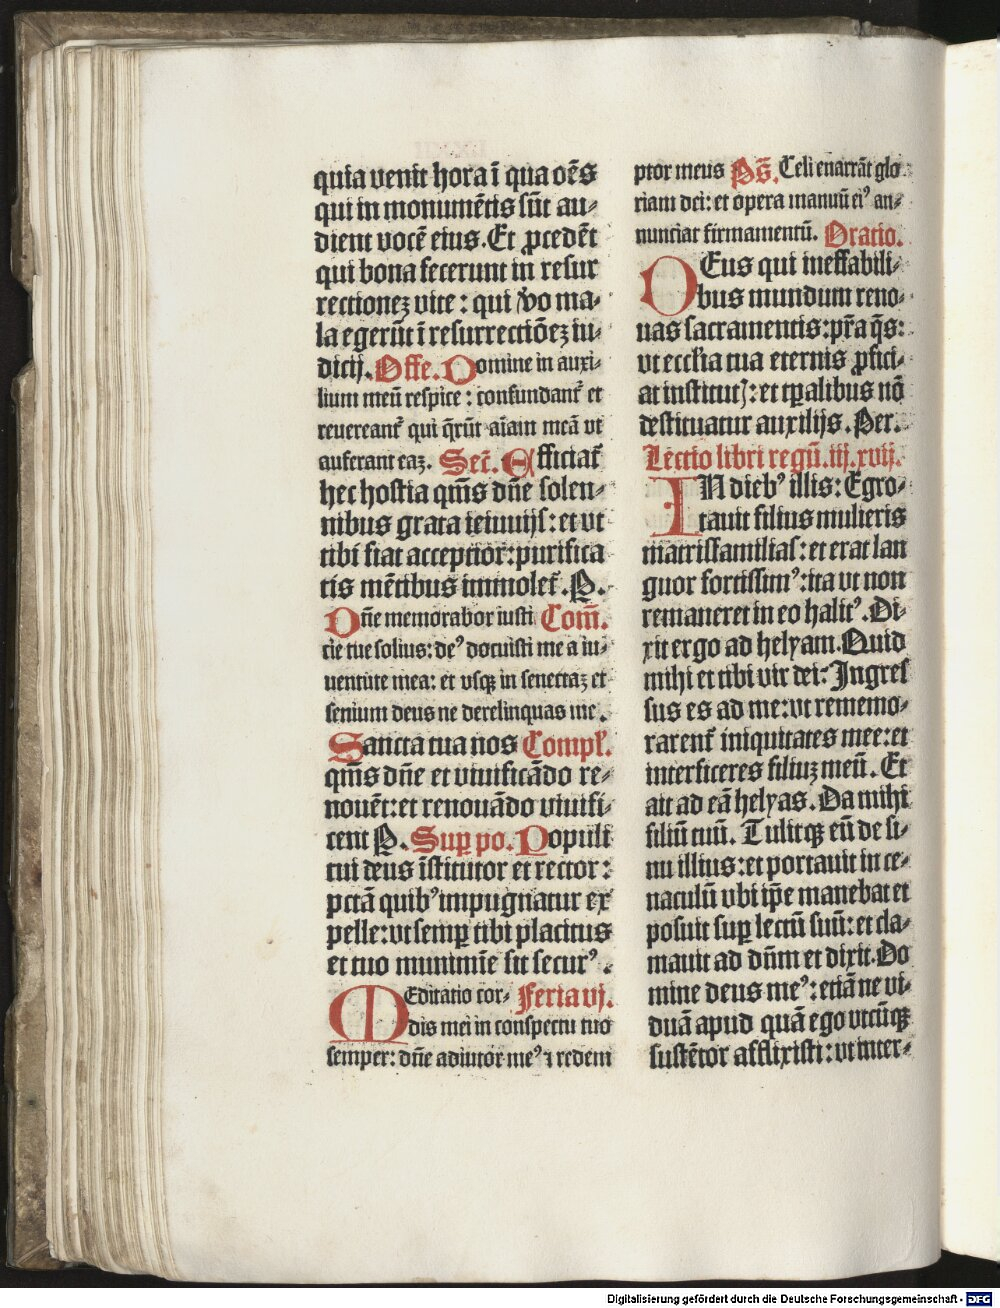 quia venit hora ī qua oēs
qui in monumētis sūt au⸗
dient vocē eius. Et ꝓcedēt
qui bona fecerunt in resur
rectionez vite : qui ꝟo ma⸗
la egerūt ī resurrectiōez iu⸗
dicij. Offe. Domine in auxi⸗
lium meū respice : confundant᷑ et
revereant᷑ qui q̄rūt aīam meā vt
auferant eaz. Secꝛ̄. Efficiat᷑
hec hostia qm̄s dn̄e solen⸗
nibus grata ieiunijs: et vt
tibi fiat acceptior: purifica
tis mētibus immolet᷑. P.
Dn̄e memorabor iusti Com̄.
cie tue solius: deꝰ docuisti me a iu⸗
uentute mea: et vsqꝫ in senectaz et
senium deus ne derelinquas me.
Sancta tua nos Compl᷑.
qm̄s dn̄e et viuificādo re⸗
nouēt: et renouādo viuifi⸗
cent P. Suꝑ po. Populi
tui deus īstitutor et rector :
pctā quibꝰ impugnatur ex
pelle: vt semꝑ tibi placitus
et tuo munimīe sit securꝰ.
MEditatio cor⸗ Feria vj.
dis mei in conspectu tuo
semper: dn̄e adiutor meꝰ ⁊ redem
ptor meus Ps̄. Celi enarrāt glo
riam dei: et opera manuū eiꝰ an⸗
nunciat firmamentū. Oratio.
DEus qui ineffabili⸗
bus mundum reno⸗
uas sacramentis: pr̄a q̄s:
vt eccl̄ia tua eternis ꝓfici⸗
at institutꝭ: et tꝑalibus nō
destituatur auxilijs. Per.
Lectio libri regū. iij. xvij.
IN diebꝰ illis: Egro⸗
tauit filius mulieris
matrisfamilias: et erat lan
guor fortissimꝰ: ita vt non
remaneret in eo halitꝰ. Di⸗
xit ergo ad helyam. Quid
mihi et tibi vir dei: Ingres
sus es ad me: vt rememo⸗
rarent᷑ iniquitates mee: et
interficeres filiuz meū. Et
ait ad eā helyas. Da mihi
filiū tuū. Tulitqꝫ eū de si⸗
nu illius: et portauit in ce⸗
naculū vbi ip̄e manebat et
posuit suꝑ lectū suū: et cla⸗
mauit ad dn̄m et dixit. Do
mine deus meꝰ: etiā ne vi⸗
duā apud quā ego vtcūqꝫ
sustētor afflixisti: vt inter⸗
Digitalisierung gefördert durch die Deutsche Forschungsgemeinschaft - DFG